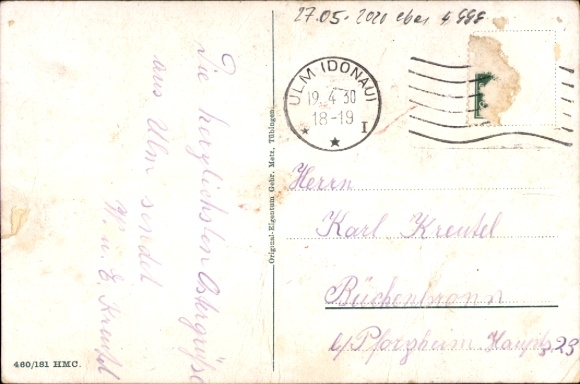 27.05. 2020 ebay 4 €
Die herzlichsten Ostergrüße
aus Ulm sendet
W. u. E. Kreutel
460/181 HMC.
Original-Eigentum Gebr. Metz, Tübingen
ULM (DONAU)
19.4.30
18-19
★ ★ I
Herrn
Karl Kreutel
Büchenbronn
b/Pforzheim Hauptstr. 23